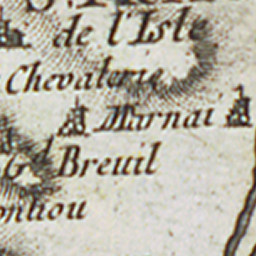 de l'Isle
Chevalerie
Marnai
Gd Breuil